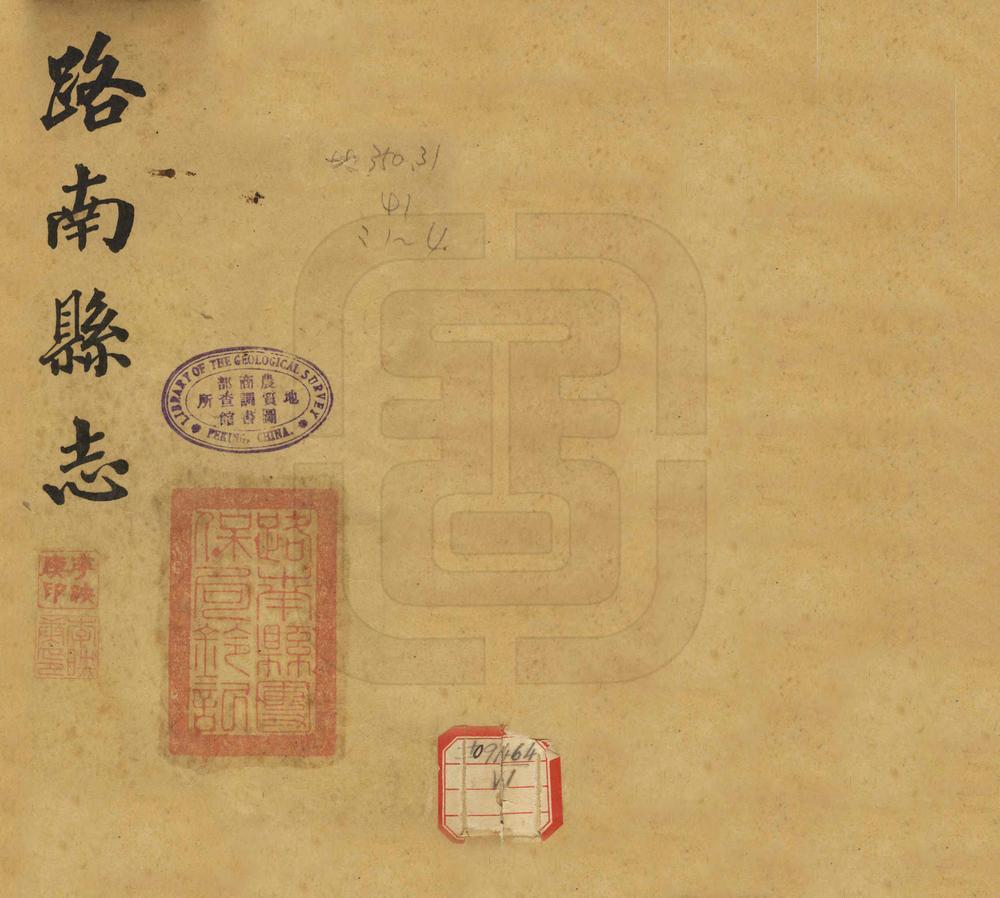 路南縣志
地350.31
φ1
:1~4.
LIBRARY OF THE GEOLOGICAL SURVEY
農商部
地質調查所
圖書館
PEKING, CHINA.
路南縣
保鈐記
李映
庚印
409464
V1